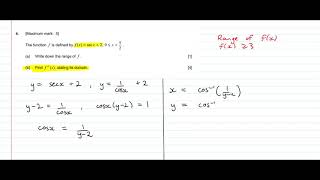 6. [Maximum mark: 5]
The function f is defined by f(x) = sec x + 2, 0 ≤ x < π/2.
(a) Write down the range of f. [1]
(b) Find f⁻¹(x), stating its domain. [4]
Range of f(x)
f(x) ≥ 3
y = sec x + 2 , y = 1/cosx + 2
y-2 = 1/cosx , cosx(y-2) = 1
cosx = 1/y-2
x = cos⁻¹(1/y-2)
y = cos⁻¹